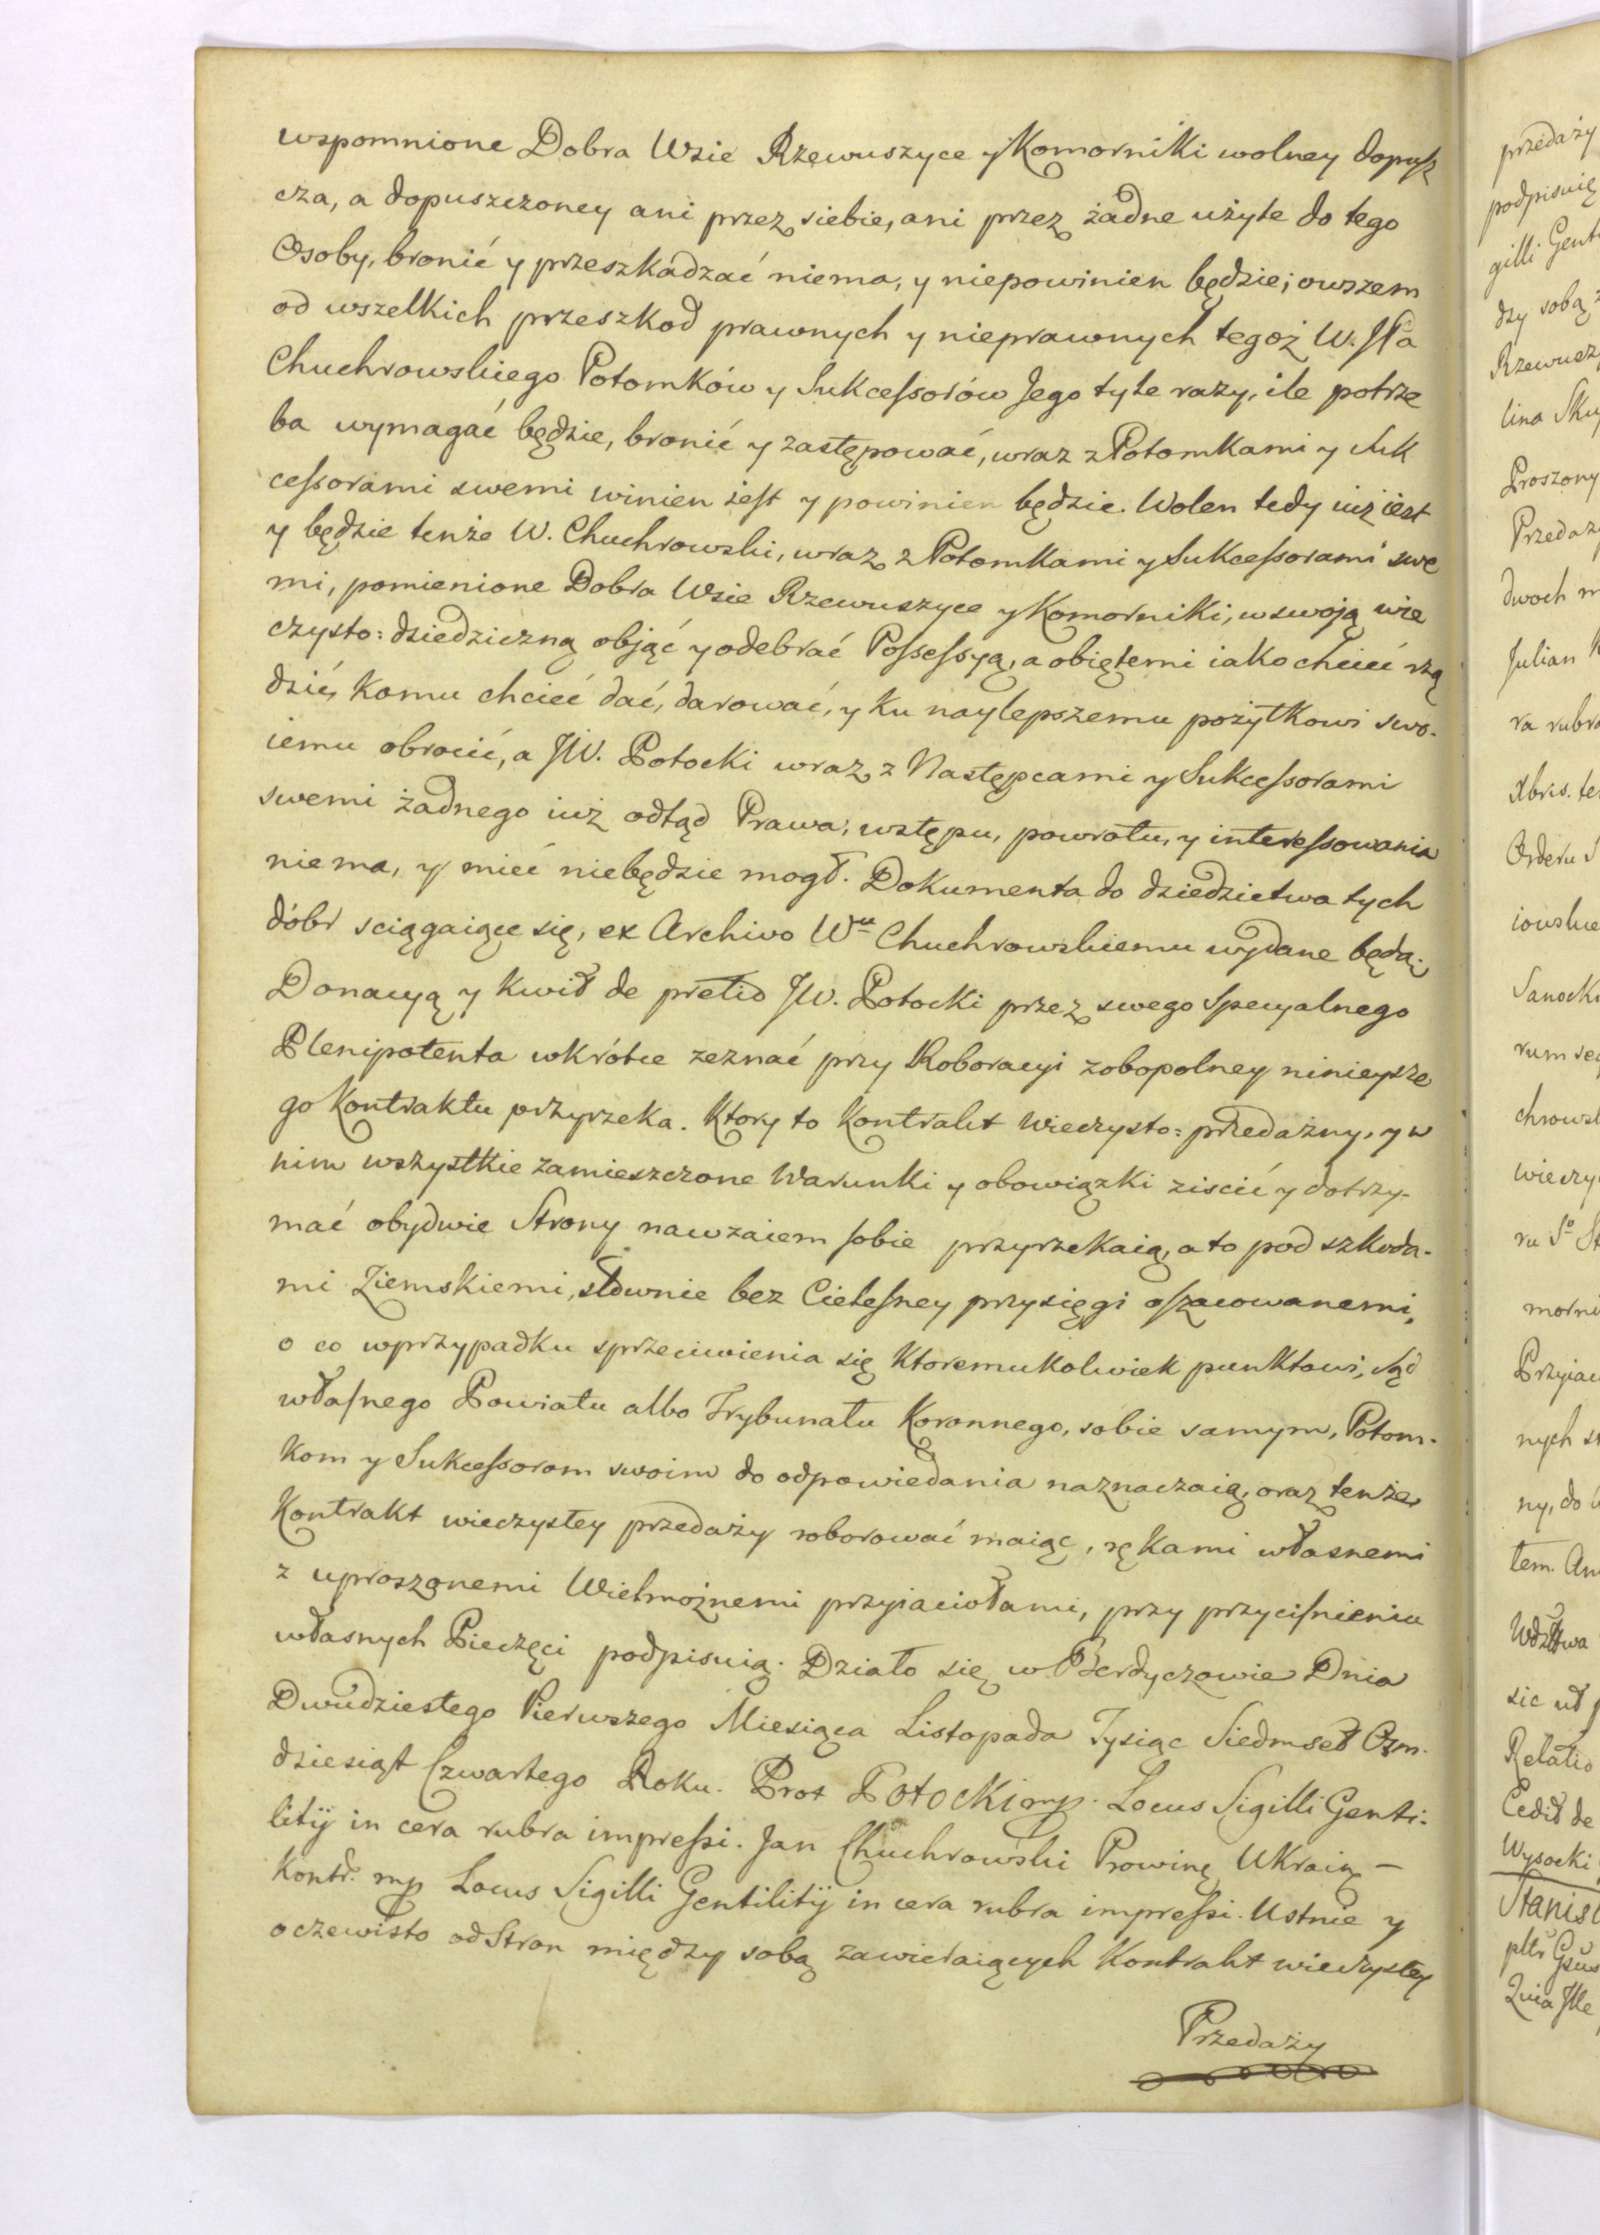 wspomnione Dobra Wsie Rzewuszyce y Komorniki wolney dopusz
cza, a dopuszczoney ani przez siebie, ani przez żadne użyte do tego
Osoby, bronić y przeszkadzać niema, y niepowinien będzie; owszem
od wszelkich przeszkod prawnych y nieprawnych tegoż W. JPa
Chuchrowskiego Potomków y Sukcessorów Jego tyle razy, ile potrze
ba wymagać będzie, bronić y zastępować, wraz z Potomkami y Suk
cessorami swemi winien iest y powinien będzie. Wolen tedy iuż iest
y będzie tenże W. Chuchrowski, wraz z Potomkami y Sukcessorami swe
mi, pomienione Dobra Wsie Rzewuszyce y Komorniki, w swoją wie
czysto: dziedziczną objąć y odebrać Possessyą, a obiętemi iako chcieć rzą
dzić, komu chcieć dać, darować, y ku naylepszemu pożytkowi swo-
iemu obrocić, a JW. Potocki wraz z Następcami y Sukcessorami
swemi żadnego iuż odtąd Prawa, wstępu, powrotu, y interessowania
nie ma, y mieć niebędzie mogł. Dokumenta do dziedzictwa tych
dóbr sciągaiące się, ex Archivo Wu Chuchrowskiemu wydane będą.
Donacyą y kwit de pretio JW. Potocki przez swego Specyalnego
Plenipotenta wkrótce zeznać przy Roboracyi zobopolney ninieysze
go Kontraktu przyrzeka. Ktory to Kontrakt Wieczysto: przedażny, y w
nim wszystkie zamieszczone Warunki y obowiązki ziscić y dotrzy-
mać obydwie Strony nawzaiem sobie przyrzekaią, a to pod szkoda-
mi Ziemskiemi, słownie bez Cielesney przysięgi oszacowanemi,
o co wprzypadku sprzeciwienia się ktoremukolwiek punktowi, Sąd
własnego Powiatu albo Trybunału Koronnego, sobie samym, Potom-
kom y Sukcessorom swoim do odpowiedania naznaczaią, oraz tenże
Kontrakt wieczystey przedaży roborować maiąc, rękami własnemi
z uproszonemi Wielmożnemi przyiaciołami, przy przyciśnieniu
własnych Pieczęci podpisuią. Działo się w Berdyczowie Dnia
Dwudziestego Pierwszego Miesiąca Listopada Tysiąc Siedmset Ozm-
dziesiąt Czwartego Roku. Prot Potocki mp. Locus Sigilli Genti-
litij in cera rubra impressi. Jan Chuchrowski Prowinę Ukraię –
Kontr. mp Locus Sigilli Gentilitij in cera rubra impressi. Ustnie y
oczewisto od Stron między sobą zawieraiących Kontrakt wieczystey
Przedaży
przedaży
podpisuię
gilli Genti
dzy sobą
Rzewusz
lina Sku
Proszony
Przedaży
dwoch
Julian
ra rubra
Xbris. te
Orderu S
iowskie
Sanocki
rum
chrowsk
wieczy
ru So St
morni
Przyiac
nych
ny, do
tem.
sie
Relatio
de
Wysocki
Stanisł